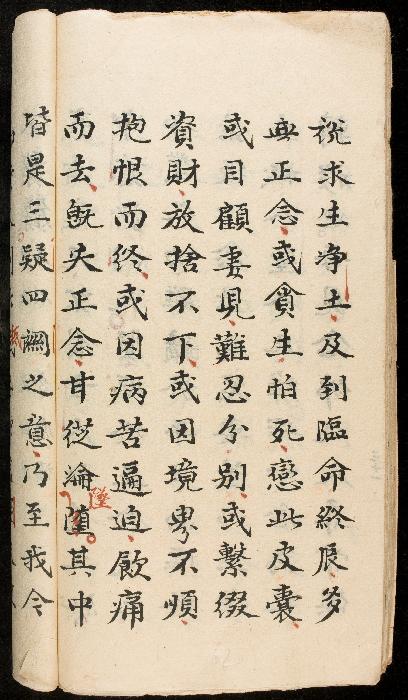 說求生净土及到臨命終辰多
無正念或貪生怕死戀此皮囊
或目顧妻児難忍分別或繫綴
資財放捨不下或因境界不順
抱恨而終或因病苦逼迫飲痛
而去既失正念甘從淪墮其中
墜
皆是三疑四關之意乃至我今